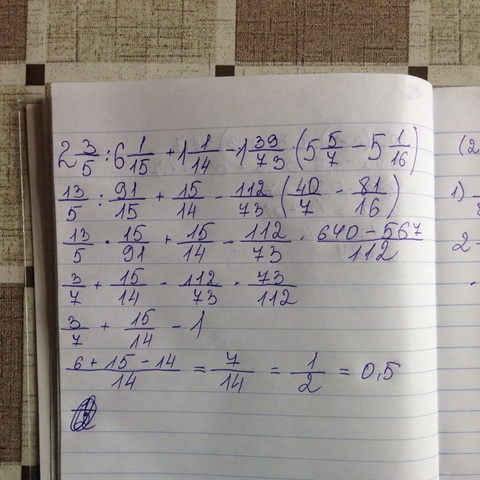 2 3/5 : 6 1/15 + 1 1/14 - 1 39/73 · (5 5/7 - 5 1/16)
13/5 : 91/15 + 15/14 - 112/73 (40/7 - 81/16)
13/5 · 15/91 + 15/14 - 112/73 · 640-567/112
3/7 + 15/14 - 112/73 · 73/112
3/7 + 15/14 - 1
6+15-14/14 = 7/14 = 1/2 = 0,5
(2
1)
2-